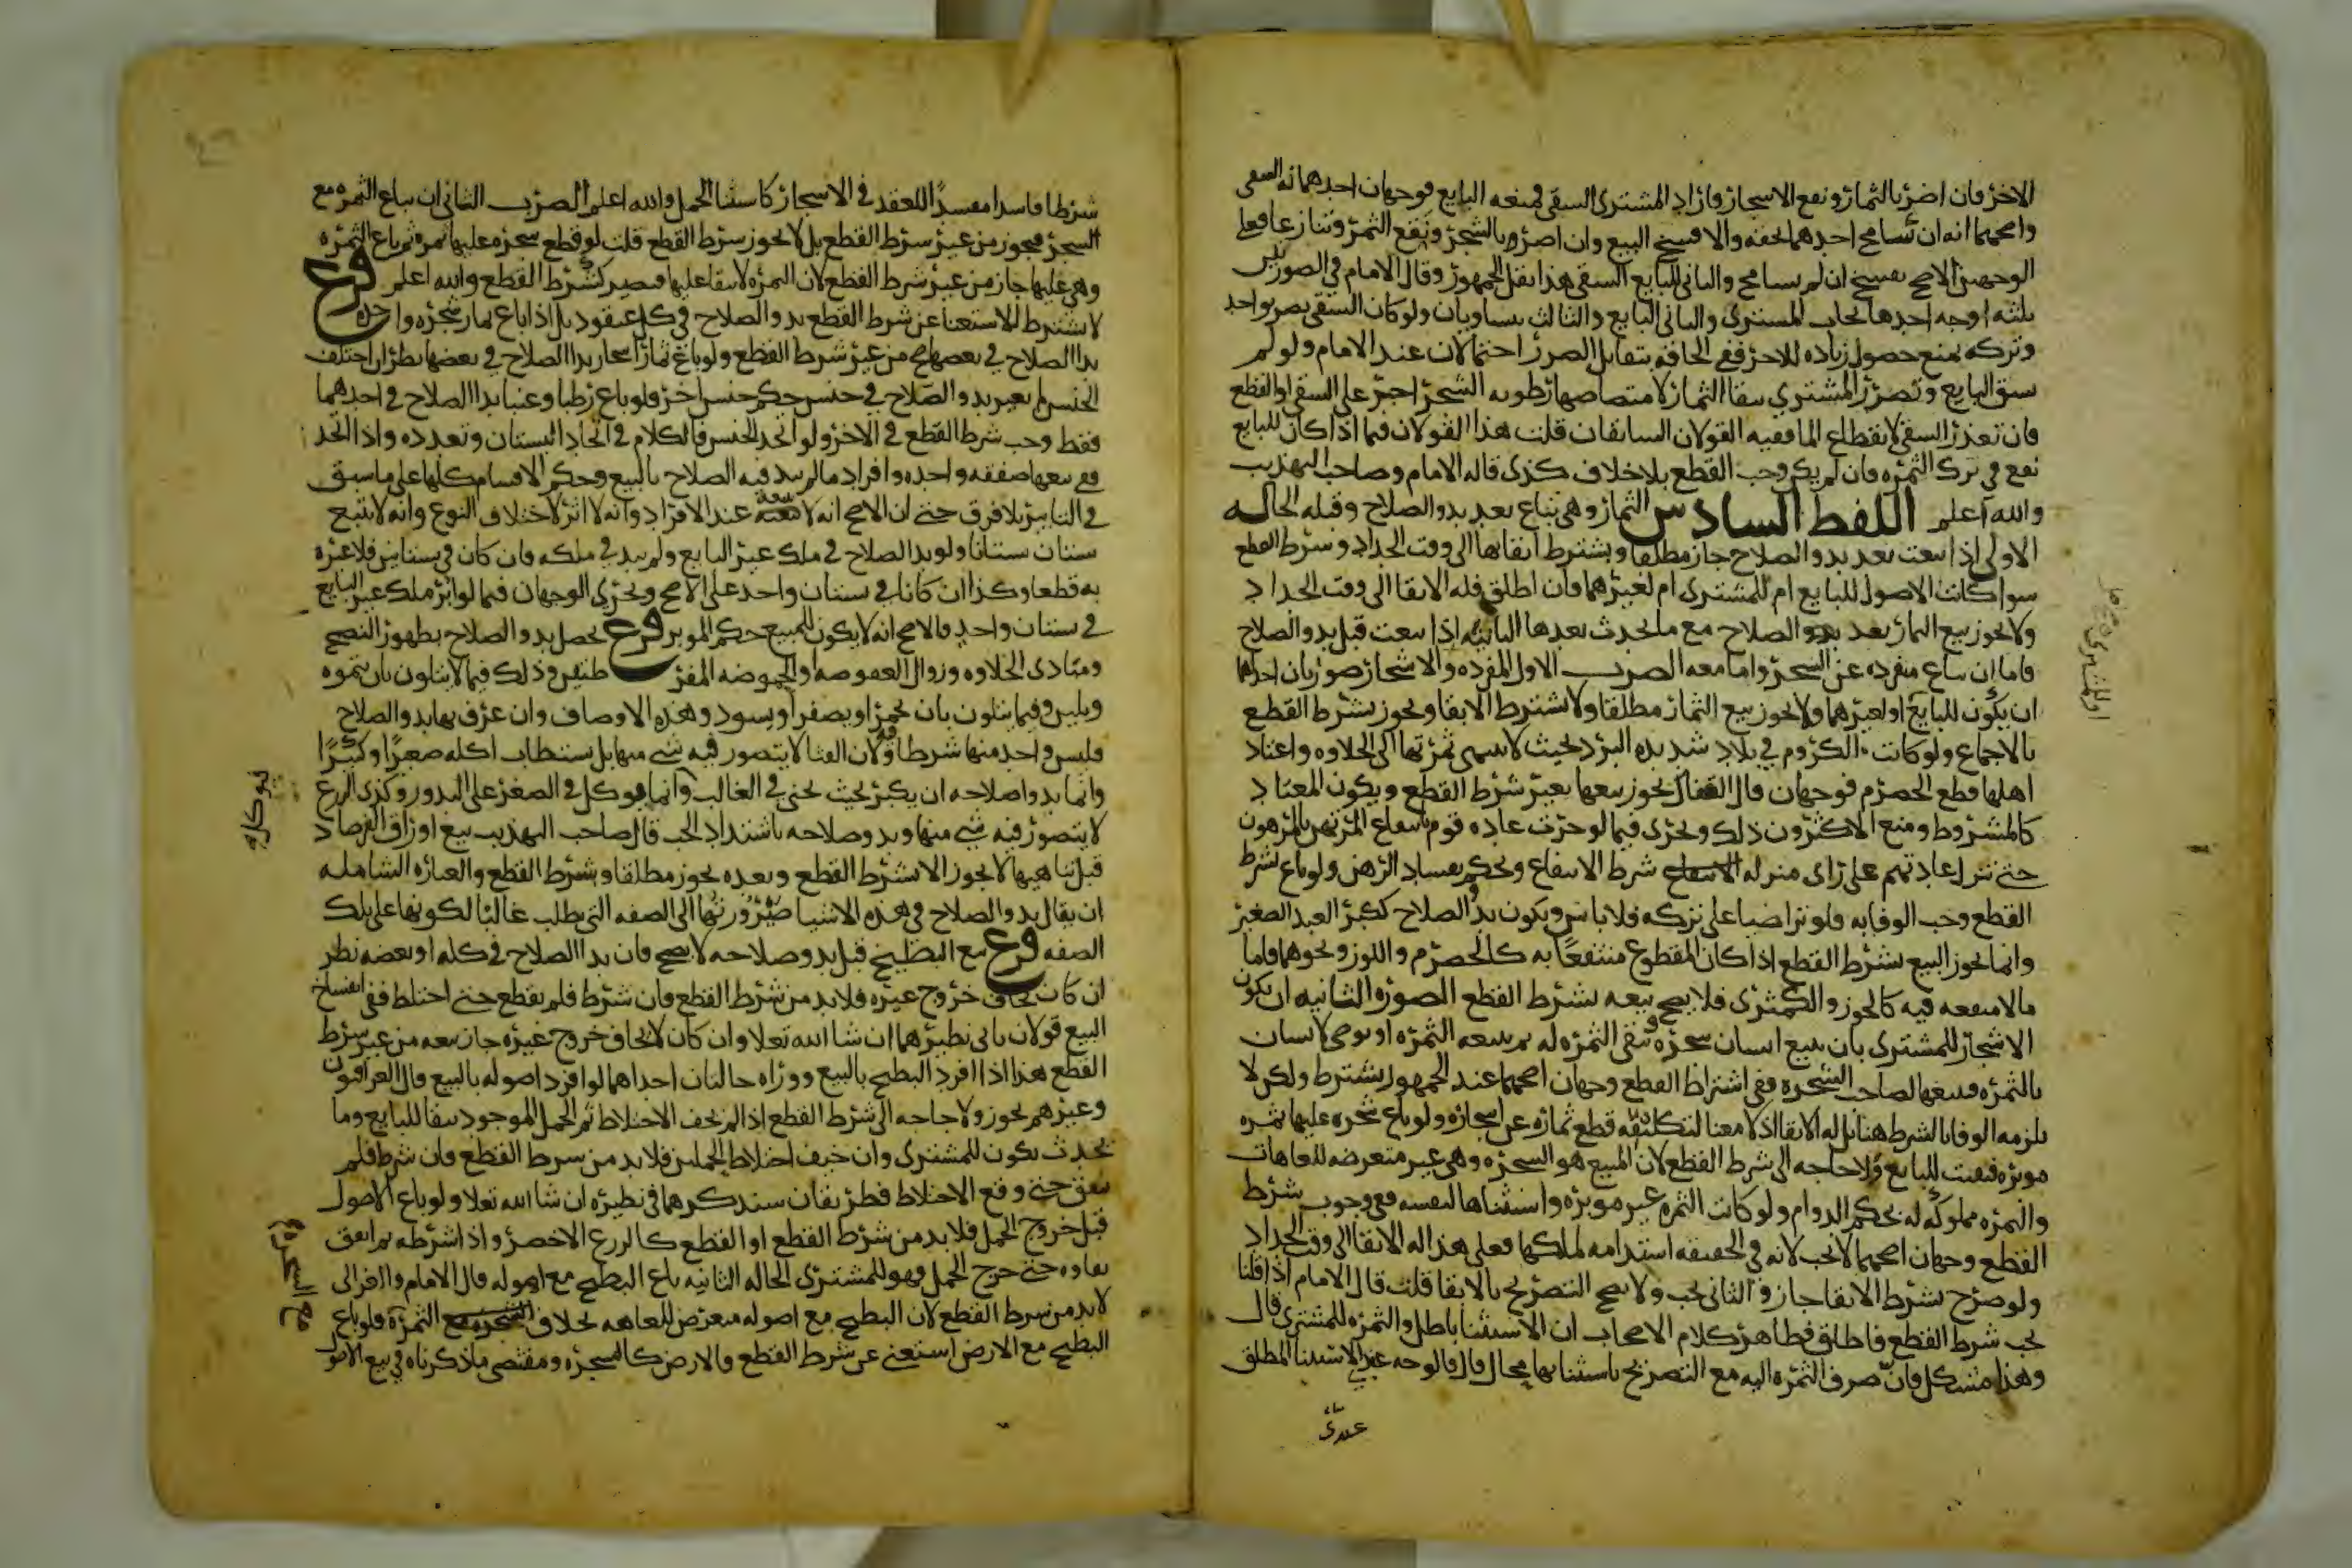 الاخر فان اضر بالثمار ونفع الاشجار واراد المشتري السقي فمنعه البايع فوجهان احدهما له السقي
واصحهما انه ان تسامح احدهما بحقه والا فسخ البيع وان اضر بالشجر ونفع الثمر وتنازعا فعلى
الوجهين الاصح يفسخ ان لم يتسامح والثاني للبايع السقي هذا نقل الجمهور وقال الامام في الصورتين
ثلثه اوجه احدها يجاب المشتري والثاني البايع والثالث يتساويان ولو كان السقي يضر بواحد
وتركه يمنع حصول زياده للاخر ففي الحاقه بتقابل الضرر احتمالان عند الامام ولو لم
يسق البايع وتضرر المشتري ببقا الثمار لامتصاصها رطوبه الشجر اجبر على السقي او القطع
فان تعذر السقي لانقطاع الما ففيه القولان السابقان قلت هذا القولان فيما اذا كان للبايع
نفع في ترك الثمره فان لم يكن وجب القطع بلا خلاف كذى قاله الامام وصاحب التهذيب
والله اعلم اللفظ السادس الثمار وهي تباع بعد بدو الصلاح وقبله الحاله
الاولى اذا بيعت بعد بدو الصلاح جاز مطلقا وبشترط ابقائها الى وقت الجداد وبشرط القطع
سوا كانت الاصول للبايع ام للمشتري ام لغيرهما فان اطلق فله الابقا الى وقت الجداد
ولا يجوز بيع الثمار بعد بدو الصلاح مع ما يحدث بعدها الثانيه اذا بيعت قبل بدو الصلاح
فاما ان تباع منفرده عن الشجر واما معه الضرب الاول المفرده والاشجار صورتان احداها
ان يكون للبايع او لغيرهما ولا يجوز بيع الثمار مطلقا ولا بشترط الابقا ويجوز بشرط القطع
بالاجماع ولو كانت الكروم في بلاد شديده البرد بحيث لا تنتهي ثمرتها الى الحلاوه واعتاد
اهلها قطع الحصرم فوجهان قال القفال يجوز بيعها بغير شرط القطع ويكون المعتاد
كالمشروط ومنع الاكثرون ذلك ويجرى فيما لو جرت عاده قوم بانتفاع المرتهن بالمرهون
حتى تنزل عادتهم على راى منزله شرط الانتفاع ويحكم بفساد الرهن ولو باع بشرط
القطع وجب الوفا به فلو تراضيا على تركه فلا باس ويكون بدو الصلاح ككبر العبد الصغير
وانما يجوز البيع بشرط القطع اذا كان المقطوع منتفعا به كالحصرم واللوز ونحوهما فاما
ما لا منفعه فيه كالجوز والكمثرى فلا يصح بيعه بشرط القطع الصوره الثانيه ان يكون
الاشجار للمشتري بان يبيع انسان شجره وتبقى الثمره له ثم يبيعه الثمره او يوصي لانسان
بالثمره فيبيعها لصاحب الشجره ففي اشتراط القطع وجهان اصحهما عند الجمهور يشترط ولكن لا
يلزمه الوفا بالشرط هنا بل له الابقا اذ لا معنا لتكليفه قطع ثماره عن اشجاره ولو باع شجره عليها ثمره
موبره فبقيت للبايع فلا حاجه الى شرط القطع لان المبيع هو الشجره وهي غير متعرضه للعاهات
والثمره مملوكه له بحكم الدوام ولو كانت الثمره غير موبره واستثناها لنفسه ففي وجوب شرط
القطع وجهان اصحهما لا يجب لانه في الحقيقه استدامه لملكها فعلى هذا له الابقا الى وقت الجداد
ولو صرح بشرط الابقا جاز والثاني يجب ولا يصح التصريح بالابقا قلت قال الامام اذا قلنا
يجب شرط القطع فاطلق فظاهر كلام الاصحاب ان الاستثنا باطل والثمره للمشتري قال
وهذا مشكل فان صرف الثمره اليه مع التصريح باستثنائها محال قال فالوجه عد الاستثنا المطلق
عندي
او للمشتري
شرطا فاسدا مفسدا للعقد في الاشجار كاستثنا الحمل والله اعلم الضرب الثاني ان تباع الثمره مع
الشجر فيجوز من غير شرط القطع بل لا يجوز شرط القطع قلت لو قطع شجره عليها ثمره ثم باع الثمره
وهي عليها جاز من غير شرط القطع لان الثمره لا تبقا عليها فيصير كشرط القطع والله اعلم فرع
لا يشترط للاستغنا عن شرط القطع بدو الصلاح في كل عنقود بل اذا باع ثمار شجره واحده
بدا الصلاح في بعضها صح من غير شرط القطع ولو باع ثمار اشجار بدا الصلاح في بعضها نظر ان اختلف
الجنس لم يغير بدو الصلاح في جنس حكم جنس اخر فلو باع رطبا وعنبا بدا الصلاح في احدهما
فقط وجب شرط القطع في الاخر ولو اتحد الجنس فالكلام في اتحاد البستان وتعدده واذا اتحد
ففي بيعها صفقه واحده وافراد ما لم يبد فيه الصلاح بالبيع وحكم الاقسام كلها على ما سبق
في التابير بلا فرق حتى ان الاصح انه لا تبعيه عند الافراد وانه لا اثر لاختلاف النوع وانه لا يتبع
بستان بستانا ولو بدا الصلاح في ملك غير البايع ولم يبد في ملكه فان كان في بستانين فلا عبره
به قطعا وكذا ان كانا في بستان واحد على الاصح ويجرى الوجهان فيما لو ابر ملك غير البايع
في بستان واحد فالاصح انه لا يكون للمبيع حكم الموبر فرع يحصل بدو الصلاح بظهور النضج
ومبادى الحلاوه وزوال العفوصه او الحموضه المفرطتين وذلك فيما لا يتلون بان يتموه
ويلين وفيما يتلون بان يحمر او يصفر او يسود وهذه الاوصاف وان عرف بها بدو الصلاح
فليس واحد منها شرطا فيه لان القثا لا يتصور فيه شي منها بل يستطاب اكله صغيرا وكبيرا
وانما بدو اصلاحه ان يكبر بحيث يجنى في الغالب وانما يوكل في الصغر على الندور وكذى الزرع
لا يتصور فيه شي منها وبدو صلاحه باشتداد الحب قال صاحب التهذيب بيع اوراق الفرصاد
قبل تناهيها لا يجوز الا بشرط القطع وبعده يجوز مطلقا وبشرط القطع والعباره الشامله
ان يقال بدو الصلاح في هذه الاشيا صيرورتها الى الصفه التي يطلب غالبا لكونها على تلك
الصفه فرع بيع البطيخ قبل بدو صلاحه لا يصح فان بدا الصلاح في كله او بعضه نظر
ان كان يخاف خروج غيره فلا بد من شرط القطع فان شرط فلم يقطع حتى اختلط ففي انفساخ
البيع قولان ياتي نظيرهما ان شا الله تعلا وان كان لا يخاف خروج غيره جاز بيعه من غير شرط
القطع هذا اذا افرد البطيخ بالبيع ووراه حالتان احداهما لو افرد اصوله بالبيع قال العراقيون
وغيرهم يجوز ولا حاجه الى شرط القطع اذا لم يخف الاختلاط ثم الحمل الموجود يبقا للبايع وما
يحدث يكون للمشتري وان خيف اختلاط الحملين فلا بد من شرط القطع فان شرط فلم
يتفق حتى وقع الاختلاط فطريقان سنذكرهما في نظيره ان شا الله تعلا ولو باع الاصول
قبل خروج الحمل فلا بد من شرط القطع او القطع كالزرع الاخضر واذا شرطه ثم اتفق
بقاوه حتى خرج الحمل فهو للمشتري الحاله الثانيه باع البطيخ مع اصوله قال الامام والغزالى
لا بد من شرط القطع لان البطيخ مع اصوله متعرض للعاهه بخلاف الشجره مع الثمره فلو باع
البطيخ مع الارض استغنى عن شرط القطع والارض كالشجره ومقتضى ما ذكرناه في بيع الاصول
يوكل